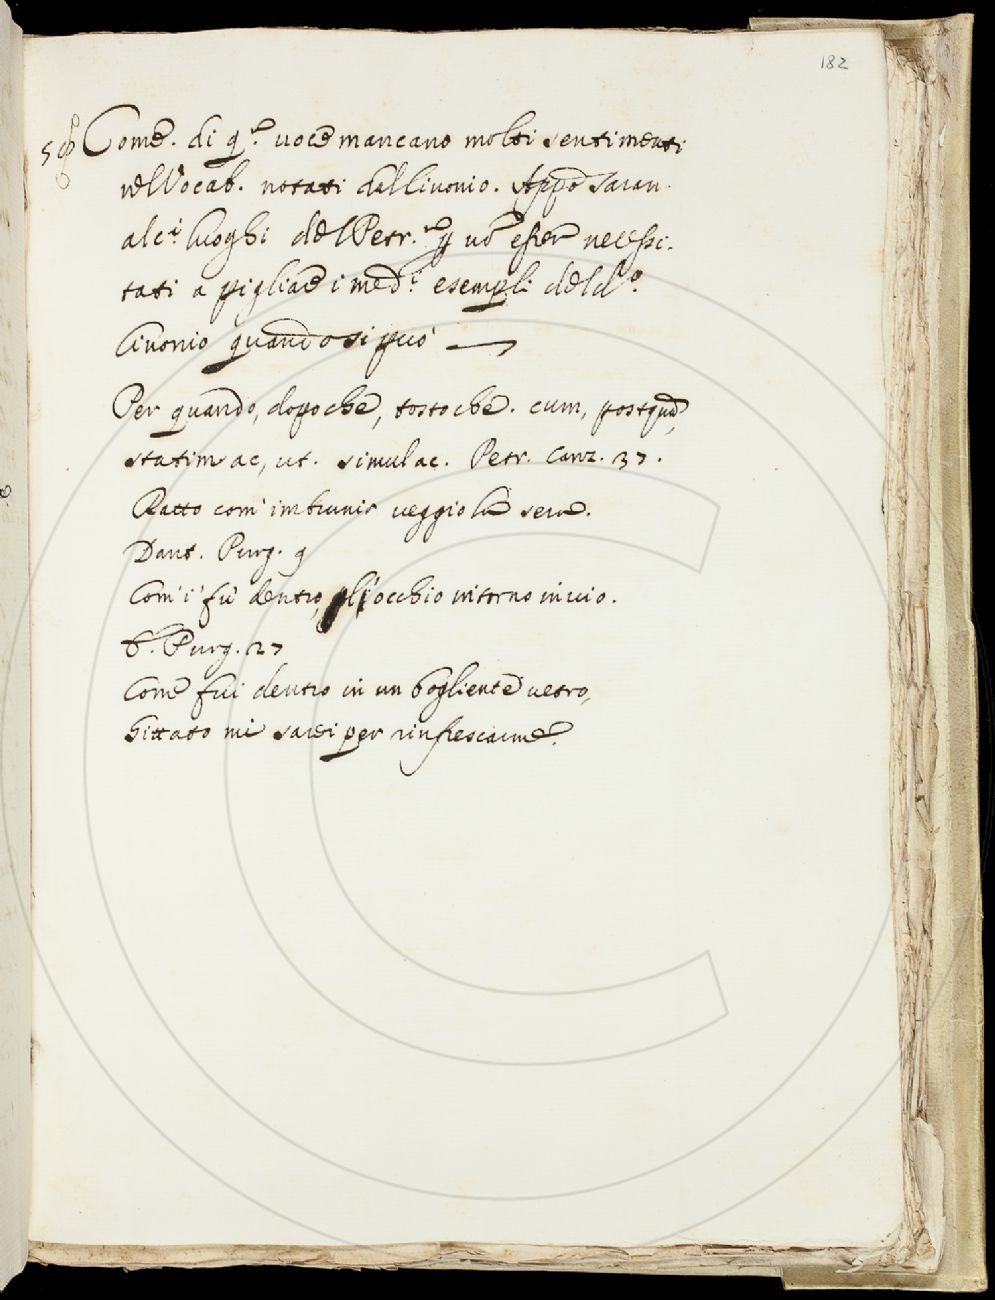 182
Come. di q.ta voce mancano molti sentimenti
nel Vocab. notati dal Cinonio. Appo saran
alc.i luoghi del Petr. p no esser necessi-
tati a pigliare i med.i esempli del d.o
Cinonio quando si può
Per quando, dopo che, tosto che. cum, postqua,
statim ac, ut. simul ac. Petr. Canz. 37.
Ratto com' imbrunir veggio la sera.
Dant. Purg. 9
Com' i' fu' dentro, gli occhio intorno invio.
E Purg. 27
Come fui dentro in un bogliente vetro,
Gittato mi sarei per rinfrescarme.